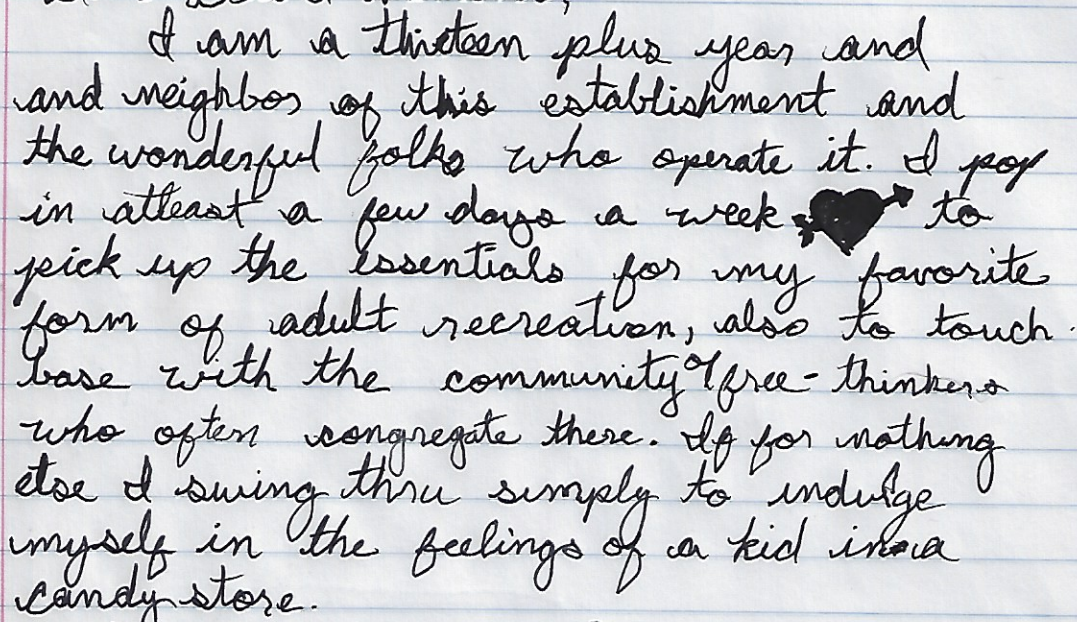 I am a thirteen plus year and
and neighbor of this establishment and
the wonderful folks who operate it. I pop
in atleast a few days a week to
pick up the essentials for my favorite
form of adult recreation, also to touch
base with the community of free-thinkers
who often congregate there. If for nothing
else I swing thru simply to indulge
myself in the feelings of a kid in a
candy store.